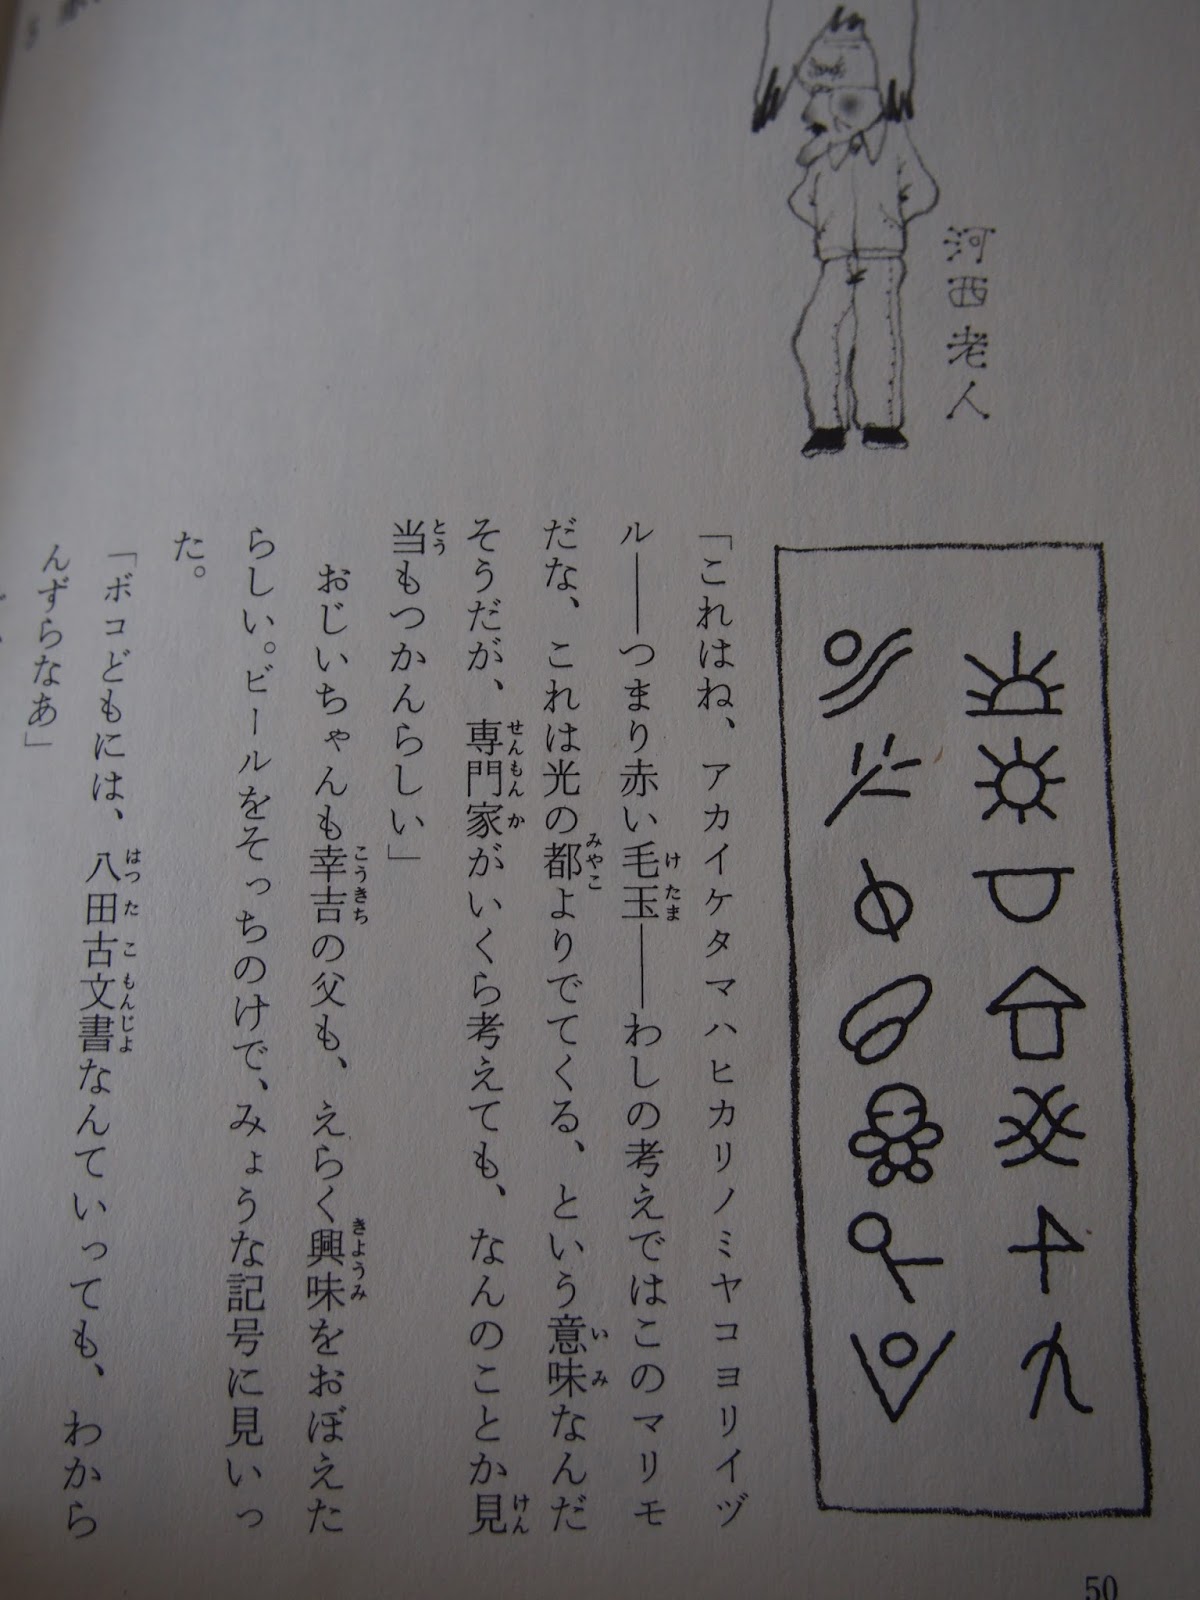 河西老人
「これはね、アカイケタマハヒカリノミヤコヨリイヅ
ル――つまり赤い毛玉――わしの考えではこのマリモ
だな、これは光の都よりでてくる、という意味なんだ
そうだが、専門家がいくら考えても、なんのことか見
当もつかんらしい」
おじいちゃんも幸吉の父も、えらく興味をおぼえた
らしい。ビールをそっちのけで、みょうな記号に見いっ
た。
「ボコどもには、八田古文書なんていっても、わから
んずらなあ」
50